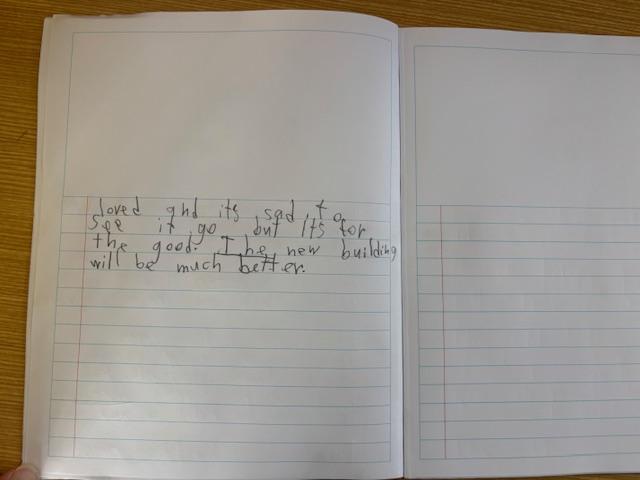 loved and its sad to
see it go but Its for
the good. The new building
will be much better.